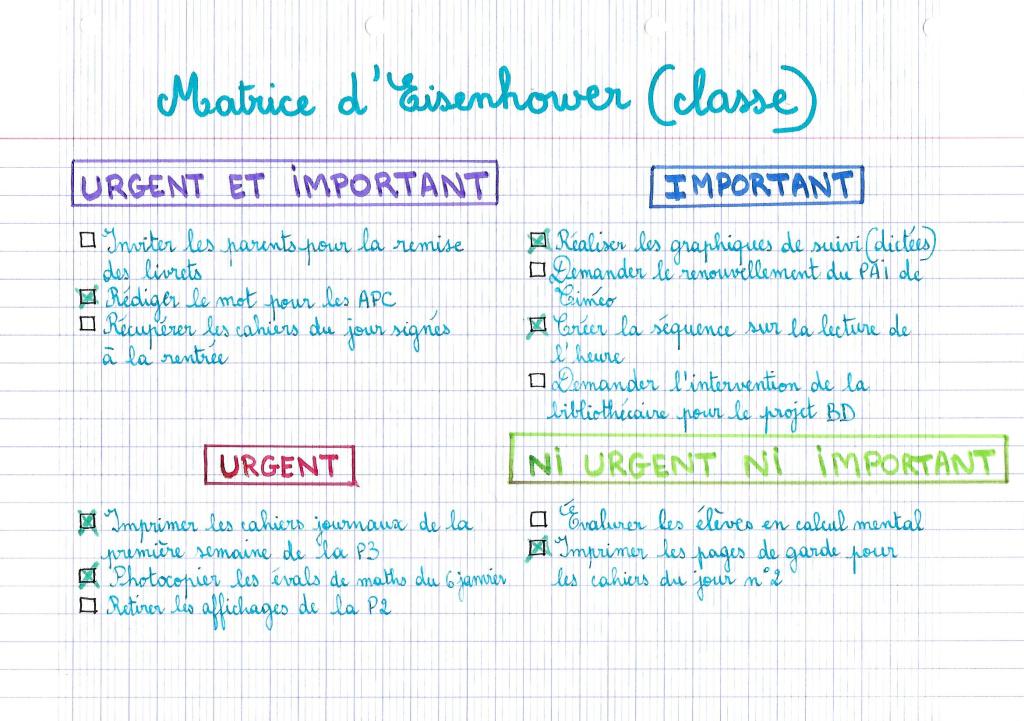 Matrice d'Eisenhower (classe)
URGENT ET IMPORTANT
Inviter les parents pour la remise
des livrets
Rédiger le mot pour les APC
Récupérer les cahiers du jour signés
à la rentrée
IMPORTANT
Réaliser les graphiques de suivi (dictées)
Demander le renouvellement du PAi de
Timéo
Créer la séquence sur la lecture de
l'heure
Demander l'intervention de la
bibliothécaire pour le projet BD
URGENT
Imprimer les cahiers journaux de la
première semaine de la P3
Photocopier les évals de maths du 6 janvier
Retirer les affichages de la P2
Ni URGENT Ni IMPORTANT
Évaluer les élèves en calcul mental
Imprimer les pages de garde pour
les cahiers du jour n°2